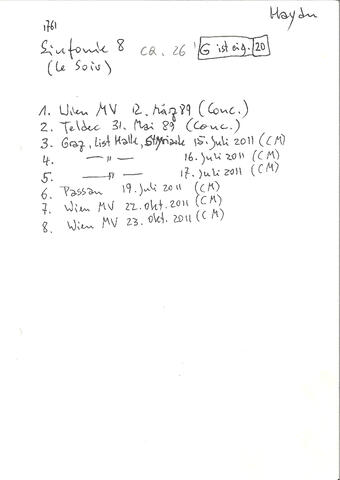 Haydn
1761
Sinfonie 8 ca. 26' G ist eig. 20
(Le Soir)
1. Wien MV 12. März 89 (Conc.)
2. Teldec 31. Mai 89 (Conc.)
3. Graz, List Halle, Styriarte 15. Juli 2011 (CM)
4. — " — 16. Juli 2011 (CM)
5. — " — 17. Juli 2011 (CM)
6. Passau 19. Juli 2011 (CM)
7. Wien MV 22. Okt. 2011 (CM)
8. Wien MV 23. Okt. 2011 (CM)